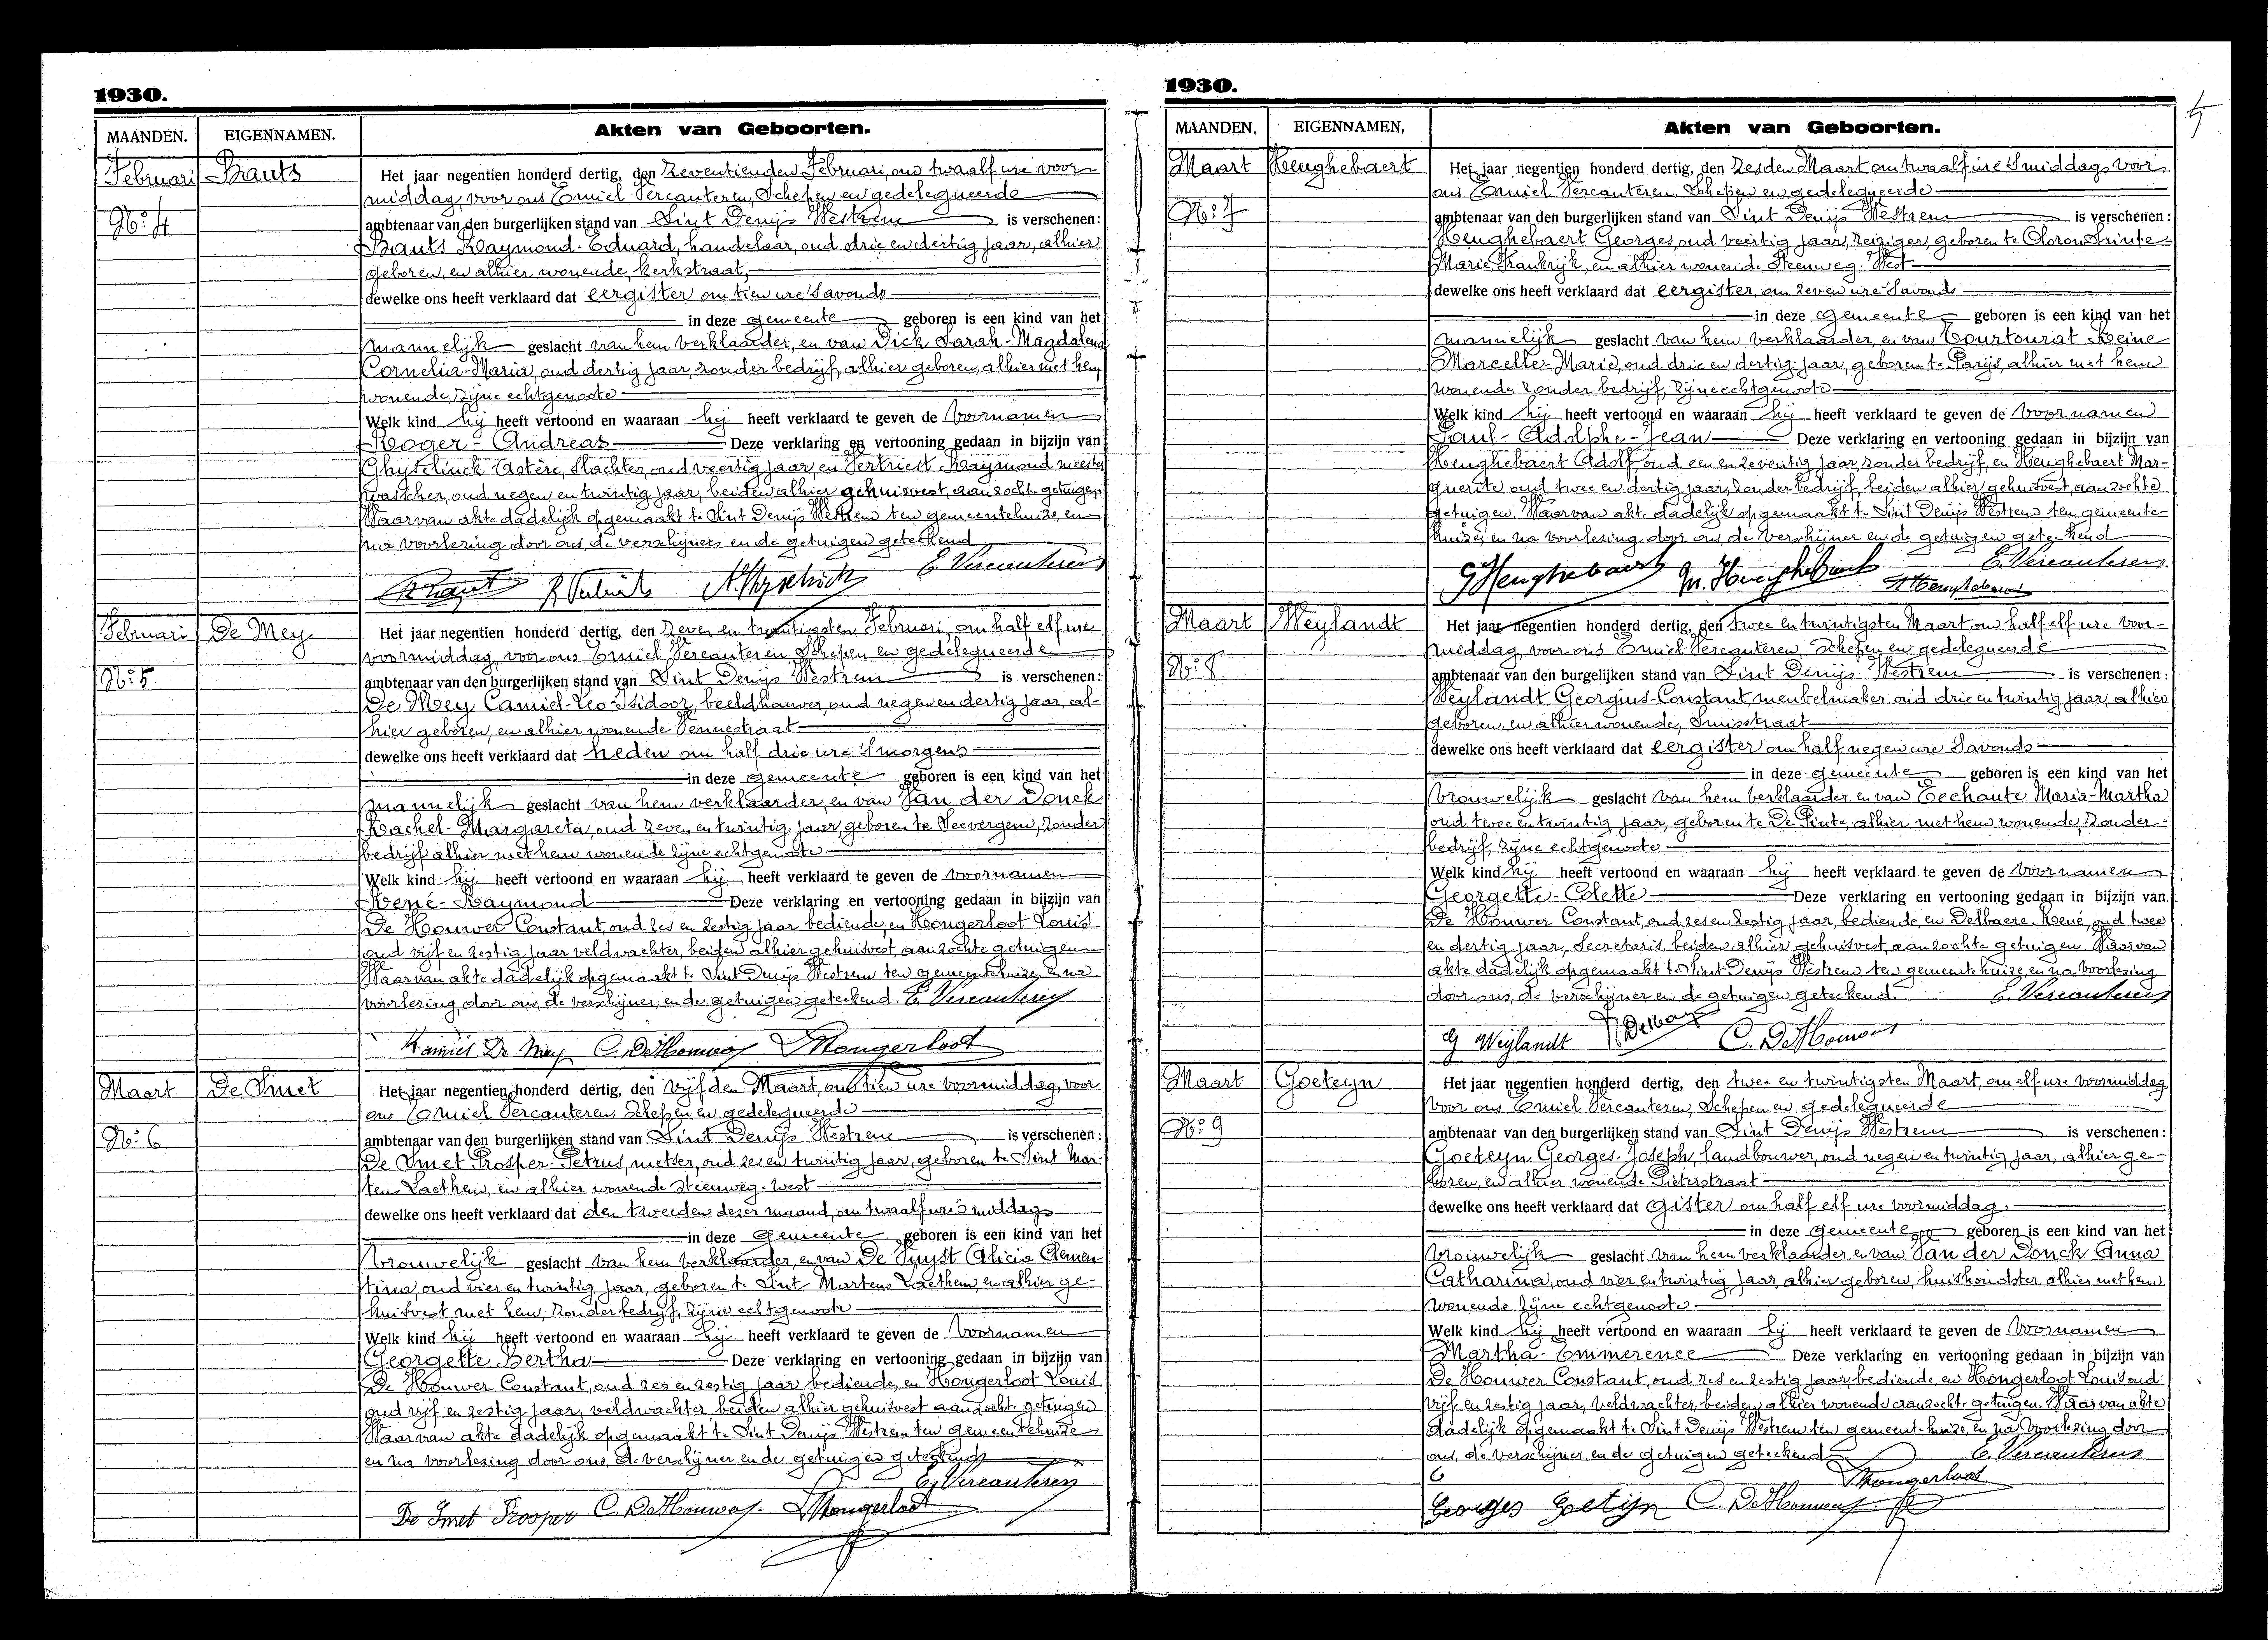 1930.
MAANDEN. EIGENNAMEN. Akten van Geboorten.
Februari Brauts Het jaar negentien honderd dertig, den Zeventienden Februari, om twaalf ure voor-
middag, voor ons Emiel Vercauteren, Schepen en gedelegueerde
No: 4 ambtenaar van den burgerlijken stand van Sint Denijs Westrem is verschenen:
Brauts Raymond-Eduard, handelaar, oud drie en dertig jaar, alhier
geboren, en alhier wonende, kerkstraat,
dewelke ons heeft verklaard dat eergister om tien ure 's avonds
in deze gemeente geboren is een kind van het
mannelijk geslacht van hem verklaarder, en van Dick Sarah-Magdalena
Cornelia-Maria, oud dertig jaar, zonder bedrijf, alhier geboren, alhier met hem
wonende, zijne echtgenoote
Welk kind hij heeft vertoond en waaraan hij heeft verklaard te geven de voornamen
Roger-Andreas Deze verklaring en vertooning gedaan in bijzijn van
Ghyselinck Astère, slachter, oud veertig jaar en Vertriest Raymond meester
wascher, oud negen en twintig jaar, beiden alhier gehuisvest, aanzochte getuigen
Waarvan akte dadelijk opgemaakt te Sint Denijs Westrem ten gemeentehuize, en
na voorlezing door ons, de verschijners en de getuigen geteekend
E. Vercauteren
Februari De Mey Het jaar negentien honderd dertig, den Zeven en twintigsten Februari, om half elf ure
voormiddag, voor ons Emiel Vercauteren, Schepen en gedelegueerde
No: 5 ambtenaar van den burgerlijken stand van Sint Denijs Westrem is verschenen:
De Mey Camiel-Leo-Isidoor, beeldhouwer, oud negen en dertig jaar, al-
hier geboren, en alhier wonende Vennestraat
dewelke ons heeft verklaard dat heden om half drie ure 's morgens
in deze gemeente geboren is een kind van het
mannelijk geslacht van hem verklaarder, en van Van der Donck
Rachel-Margareta, oud zeven en twintig jaar, geboren te Seevergem, zonder
bedrijf alhier met hem wonende zijne echtgenoote
Welk kind hij heeft vertoond en waaraan hij heeft verklaard te geven de voornamen
René-Raymond Deze verklaring en vertooning gedaan in bijzijn van
De Houwer Constant, oud zes en zestig jaar bediende, en Hongerloot Louis
oud vijf en zestig jaar veldwachter, beiden alhier gehuisvest, aanzochte getuigen
Waarvan akte dadelijk opgemaakt te Sint Denijs Westrem ten gemeentehuize, en na
voorlezing, door ons, de verschijner, en de getuigen geteekend. E. Vercauteren
Kamiel De Mey C. De Houwer L Hongerloot
Maart De Smet Het jaar negentien honderd dertig, den vijfden Maart, om tien ure voormiddag, voor
ons Emiel Vercauteren, Schepen en gedelegueerde
No: 6 ambtenaar van den burgerlijken stand van Sint Denijs Westrem is verschenen:
De Smet Prosper-Petrus, metser, oud zes en twintig jaar, geboren te Sint Mar-
tens Laethem, en alhier wonende steenweg-west
dewelke ons heeft verklaard dat den tweeden dezer maand, om twaalf ure 's middags
in deze gemeente geboren is een kind van het
vrouwelijk geslacht van hem verklaarder, en van De Puyst Alicia Clemen-
tina, oud vier en twintig jaar, geboren te Sint Martens Laethem, en alhier ge-
huisvest met hem, zonder bedrijf, zijne echtgenoote
Welk kind hij heeft vertoond en waaraan hij heeft verklaard te geven de voornamen
Georgette Bertha Deze verklaring en vertooning gedaan in bijzijn van
De Houwer Constant, oud zes en zestig jaar bediende, en Hongerloot Louis
oud vijf en zestig jaar, veldwachter beiden alhier gehuisvest aanzochte getuigen
Waarvan akte dadelijk opgemaakt te Sint Denijs Westrem ten gemeentehuize
en na voorlezing door ons, de verschijner en de getuigen geteekend
E. Vercauteren
De Smet Prosper C. De Houwer L Hongerloot
1930.
MAANDEN. EIGENNAMEN, Akten van Geboorten.
Maart Heughebaert Het jaar negentien honderd dertig, den Zesden Maart om twaalf ure 's middags voor
ons Emiel Vercauteren, Schepen en gedelegueerde
No: 7 ambtenaar van den burgerlijken stand van Sint Denijs Westrem is verschenen:
Heughebaert Georges, oud veertig jaar, reiziger, geboren te Oloron Sainte-
Marie, Frankrijk, en alhier wonende Steenweg-West
dewelke ons heeft verklaard dat eergister, om zeven ure 's avonds
in deze gemeente geboren is een kind van het
mannelijk geslacht van hem verklaarder, en van Courtourat Reine
Marcelle-Marie, oud drie en dertig jaar, geboren te Parijs, alhier met hem
wonende zonder bedrijf, zijne echtgenoote
Welk kind hij heeft vertoond en waaraan hij heeft verklaard te geven de voornamen
Paul-Adolphe-Jean Deze verklaring en vertooning gedaan in bijzijn van
Heughebaert Adolf, oud een en zeventig jaar, zonder bedrijf, en Heughebaert Mar-
guerite oud twee en dertig jaar, zonder bedrijf, beiden alhier gehuisvest, aanzochte
getuigen. Waarvan akte dadelijk opgemaakt te Sint Denijs Westrem ten gemeente-
huize, en na voorlezing door ons, de verschijner en de getuigen geteekend
E. Vercauteren
G Heughebaert M. Heughebaert A Heughebaert
Maart Weylandt Het jaar negentien honderd dertig, den twee en twintigsten Maart om half elf ure voor-
middag, voor ons Emiel Vercauteren, Schepen en gedelegueerde
No: 8 ambtenaar van den burgelijken stand van Sint Denijs Westrem is verschenen:
Weylandt Georgius-Constant, meubelmaker, oud drie en twintig jaar, alhier
geboren, en alhier wonende, Smisstraat
dewelke ons heeft verklaard dat eergister om half negen ure 's avonds
in deze gemeente geboren is een kind van het
vrouwelijk geslacht van hem verklaarder, en van Eechaute Maria-Martha
oud twee en twintig jaar, geboren te De Pinte, alhier met hem wonende, zonder-
bedrijf, zijne echtgenoote
Welk kind hij heeft vertoond en waaraan hij heeft verklaard te geven de voornamen
Georgette-Colette Deze verklaring en vertooning gedaan in bijzijn van
De Houwer Constant, oud zes en zestig jaar, bediende, en Delbaere René, oud twee
en dertig jaar, Secretaris, beiden alhier gehuisvest, aanzochte getuigen. Waarvan
akte dadelijk opgemaakt te Sint Denijs Westrem ten gemeentehuize, en na voorlezing
door ons, de verschijner en de getuigen geteekend. E. Vercauteren
G Weylandt C. De Houwer
Maart Goeteyn Het jaar negentien honderd dertig, den twee en twintigsten Maart, om elf ure voormiddag
voor ons Emiel Vercauteren, Schepen en gedelegueerde
No: 9 ambtenaar van den burgerlijken stand van Sint Denijs Westrem is verschenen:
Goeteyn Georges-Joseph, landbouwer, oud negen en twintig jaar, alhier ge-
boren, en alhier wonende Pieterstraat
dewelke ons heeft verklaard dat gister om half elf ure voormiddag
in deze gemeente geboren is een kind van het
vrouwelijk geslacht van hem verklaarder en van Van der Donck Anna
Catharina, oud vier en twintig jaar, alhier geboren, huishoudster, alhier met hem
wonende zijne echtgenoote
Welk kind hij heeft vertoond en waaraan hij heeft verklaard te geven de voornamen
Martha-Emmerence Deze verklaring en vertooning gedaan in bijzijn van
De Houwer Constant, oud zes en zestig jaar, bediende, en Hongerloot Louis oud
vijf en zestig jaar, veldwachter, beiden alhier wonende aanzochte getuigen. Waarvan akte
dadelijk opgemaakt te Sint Denijs Westrem ten gemeentehuize, en na voorlezing door
ons, de verschijner, en de getuigen geteekend E. Vercauteren
Hongerloot
Georges Goetijn C. De Houwer